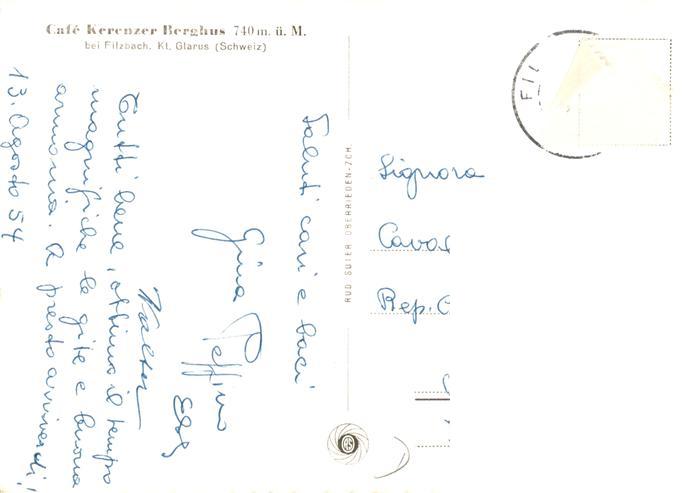 Café Kerenzer Berghus 740 m. ü. M.
bei Filzbach, Kt. Glarus (Schweiz)
13. Agosto 54
Tutti bene, ottimo il tempo
magnifiche le gite e buona
armonia. A presto arrivederci!
Walter
Saluti cari e baci
Gina Peppino
RUD. SUTER OBERRIEDEN-ZCH.
Signora
Rep.
FIL